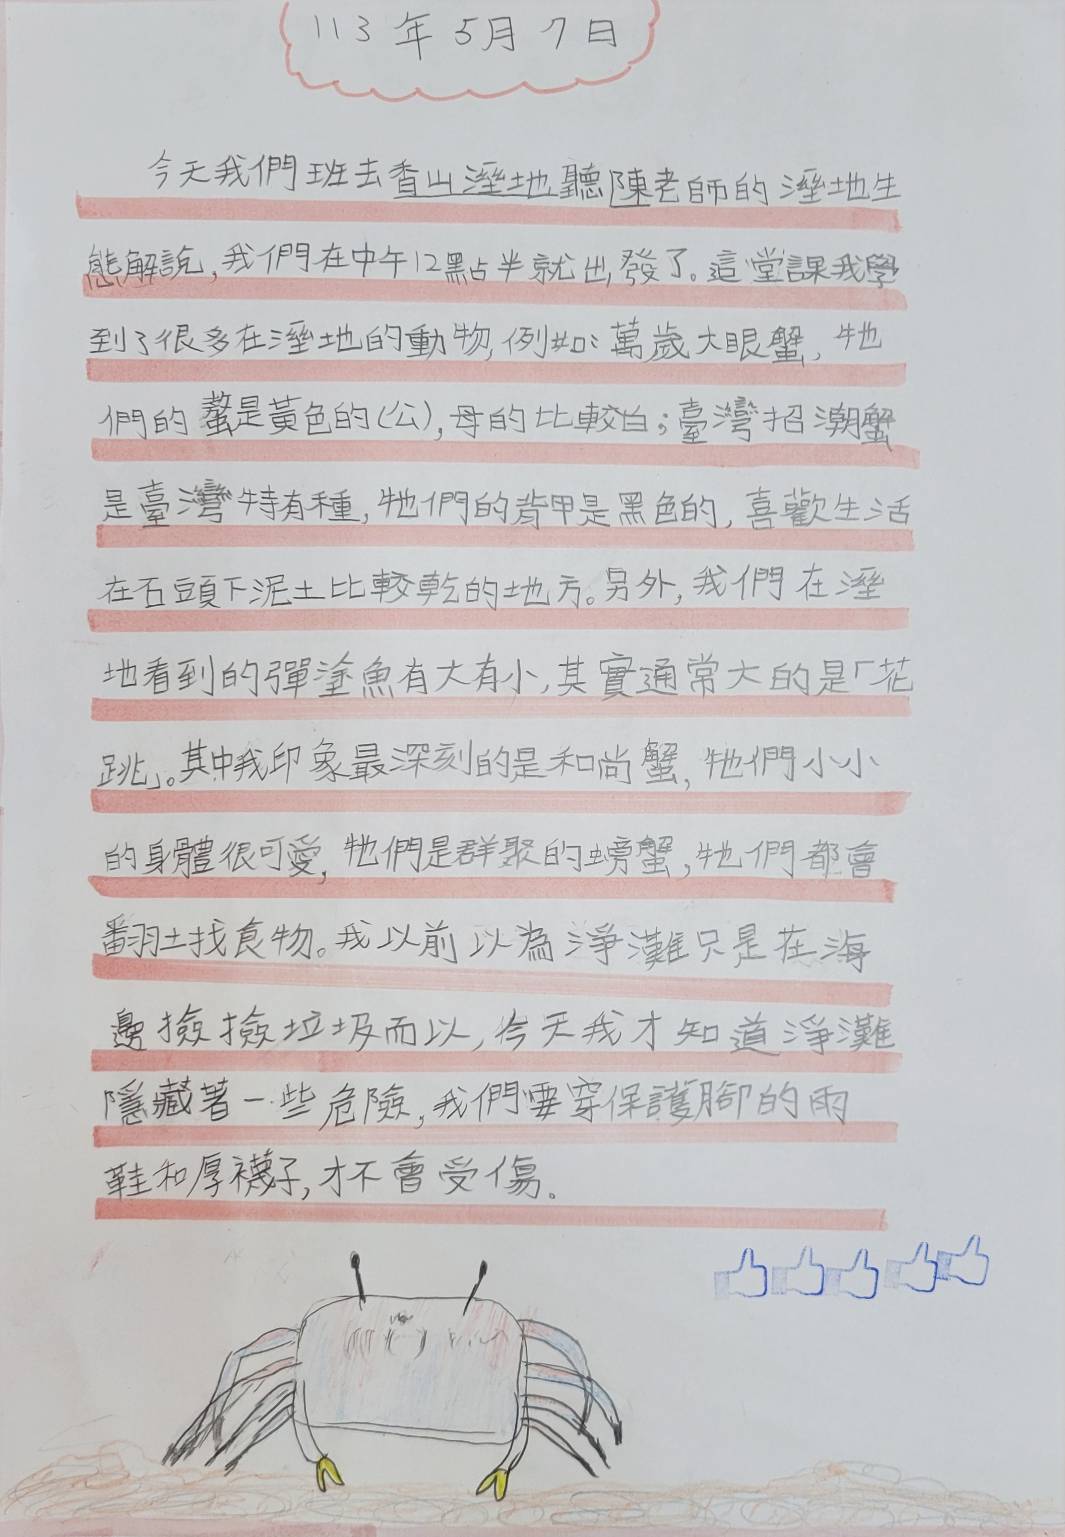 113年5月7日
今天我們班去香山溼地聽陳老師的溼地生
態解說，我們在中午12點半就出發了。這堂課我學
到了很多在溼地的動物，例如：萬歲大眼蟹，牠
們的螯是黃色的(公)，母的比較白；臺灣招潮蟹
是臺灣特有種，牠們的背甲是黑色的，喜歡生活
在石頭下泥土比較乾的地方。另外，我們在溼
地看到的彈塗魚有大有小，其實通常大的是「花
跳」。其中我印象最深刻的是和尚蟹，牠們小小
的身體很可愛，牠們是群聚的螃蟹，牠們都會
翻土找食物。我以前以為淨灘只是在海
邊撿撿垃圾而以，今天我才知道淨灘
隱藏著一些危險，我們要穿保護腳的雨
鞋和厚襪子，才不會受傷。